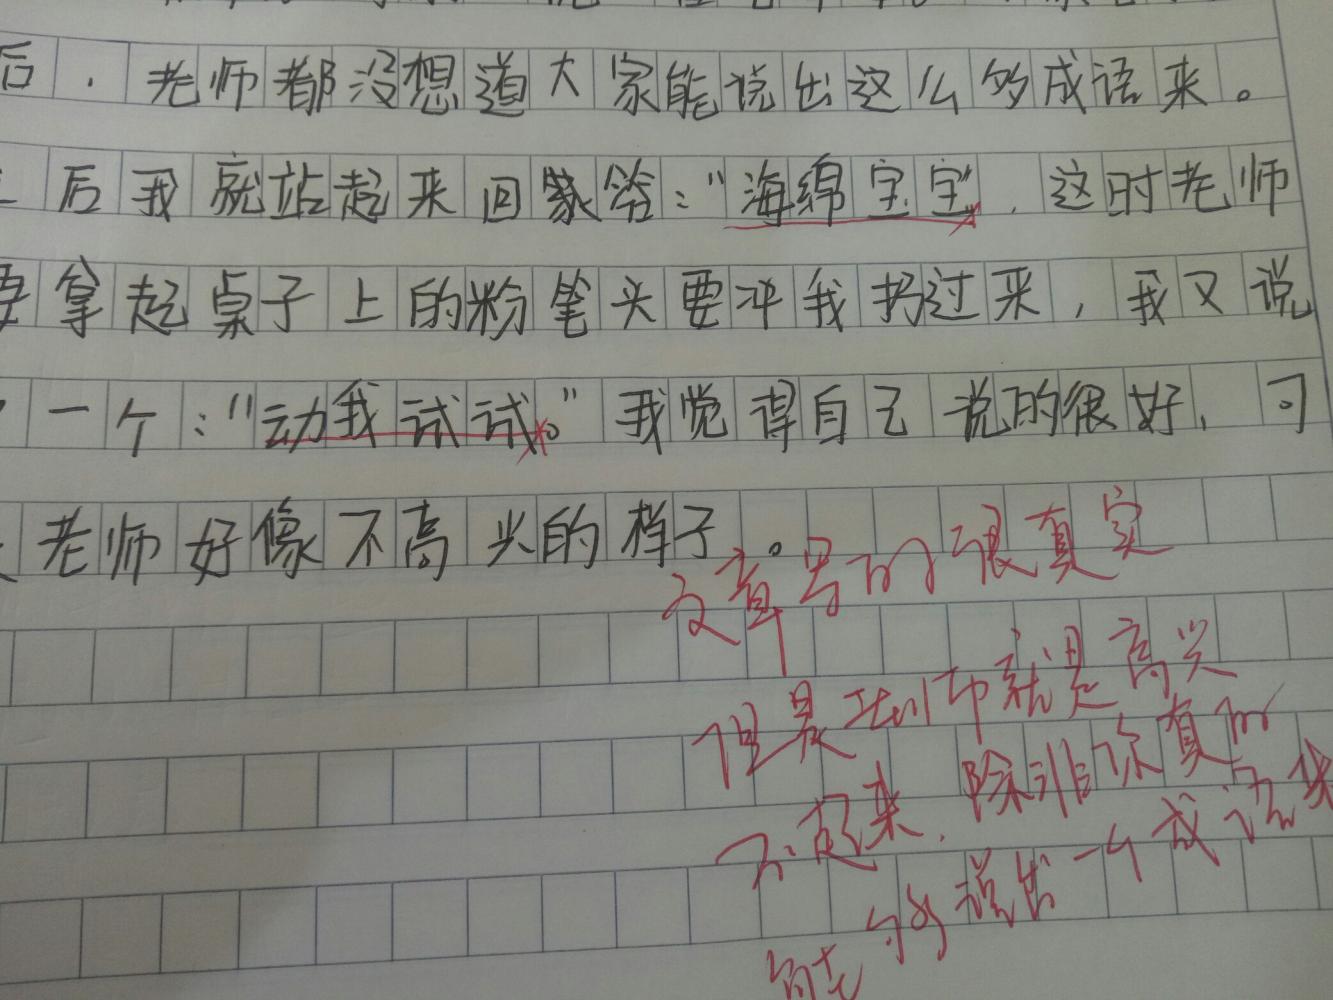 后，老师都没想道大家能说出这么多成语来。
后我就站起来回家答："海绵宝宝"，这时老师
要拿起桌子上的粉笔头要冲我扔过来，我又说
一个："动我试试。"我觉得自己说的很好，可
老师好像不高兴的样子。
文章写的很真实
但是老师就是高兴
不起来，除非你真的
能够说出一个成语来